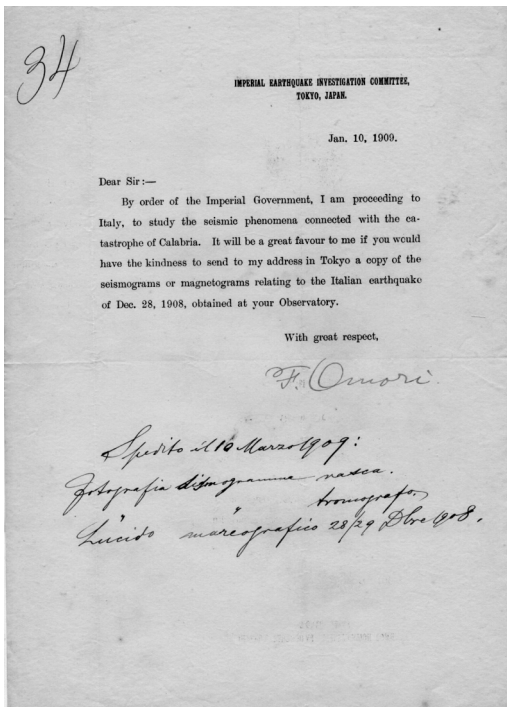 34
IMPERIAL EARTHQUAKE INVESTIGATION COMMITTEE,
TOKYO, JAPAN.
Jan. 10, 1909.
Dear Sir:—
By order of the Imperial Government, I am proceeding to
Italy, to study the seismic phenomena connected with the ca-
tastrophe of Calabria. It will be a great favour to me if you would
have the kindness to send to my address in Tokyo a copy of the
seismograms or magnetograms relating to the Italian earthquake
of Dec. 28, 1908, obtained at your Observatory.
With great respect,
F. Omori
Spedito il 10 Marzo 1909:
Fotografia sismogramma vasca.
" " tromografo.
Lucido mareografico 28/29 Dbre 1908.